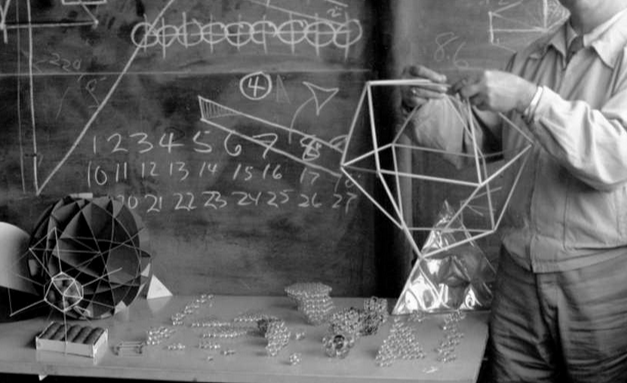 86
4
1 2 3 4 5 6 7 8
10 11 12 13 14 15 16 17
20 21 22 23 24 25 26 27